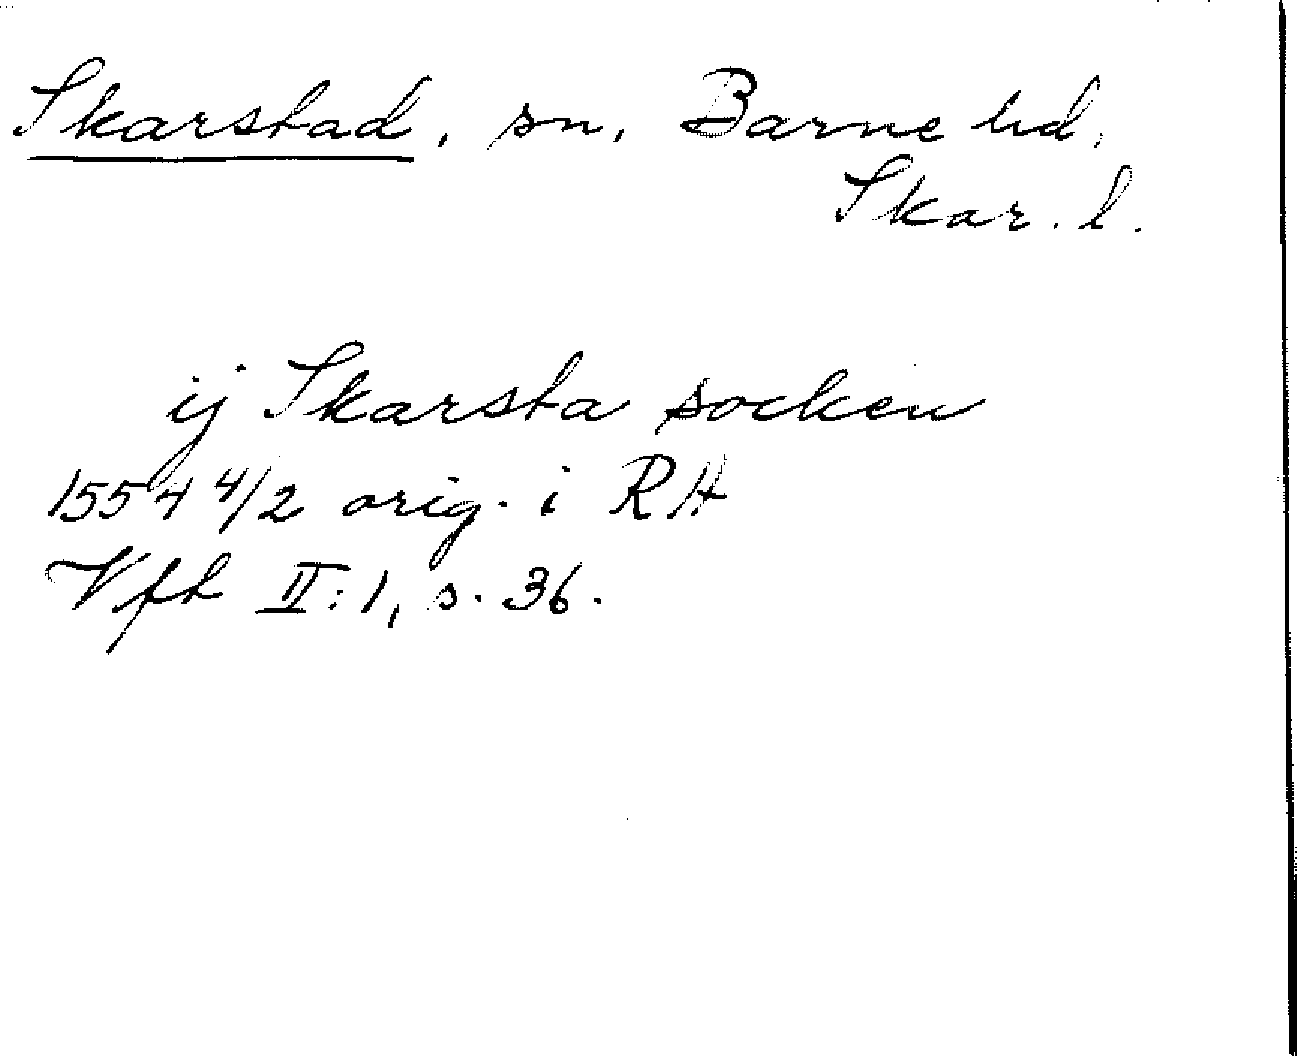 Skarstad, sn, Barne hd,
Skar. l.
ij Skarsta socken
1554 4/2 orig. i RH
Vft II:1, s. 36.